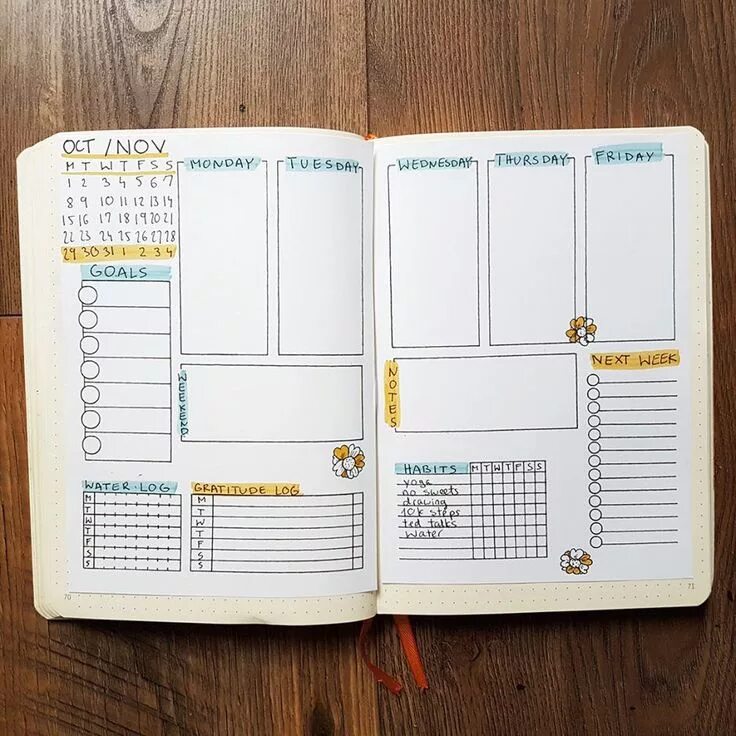 OCT / NOV
M T W T F S S
1 2 3 4 5 6 7
8 9 10 11 12 13 14
15 16 17 18 19 20 21
22 23 24 25 26 27 28
29 30 31 1 2 3 4
GOALS
MONDAY
TUESDAY
WEEKEND
WATER·LOG
M
T
W
T
F
S
S
GRATITUDE LOG
M
T
W
T
F
S
S
70
WEDNESDAY
THURSDAY
FRIDAY
NOTES
NEXT WEEK
HABITS M T W T F S S
yoga
no sweets
drawing
10k steps
ted talks
water
71